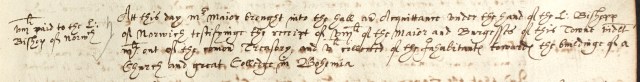 paid to the L:
Bishop of Norwch
At this day mr Maior brought into the hall an Acquittance under the hand of the L: Bishopp
of Norwich testifyinge the receipt of of the Maior and Burgesses of this Towne videlt
out of the comon Treasory, and collected of the Inhabitants towards the buildinge of a
Church and great Colledge in Bohemia